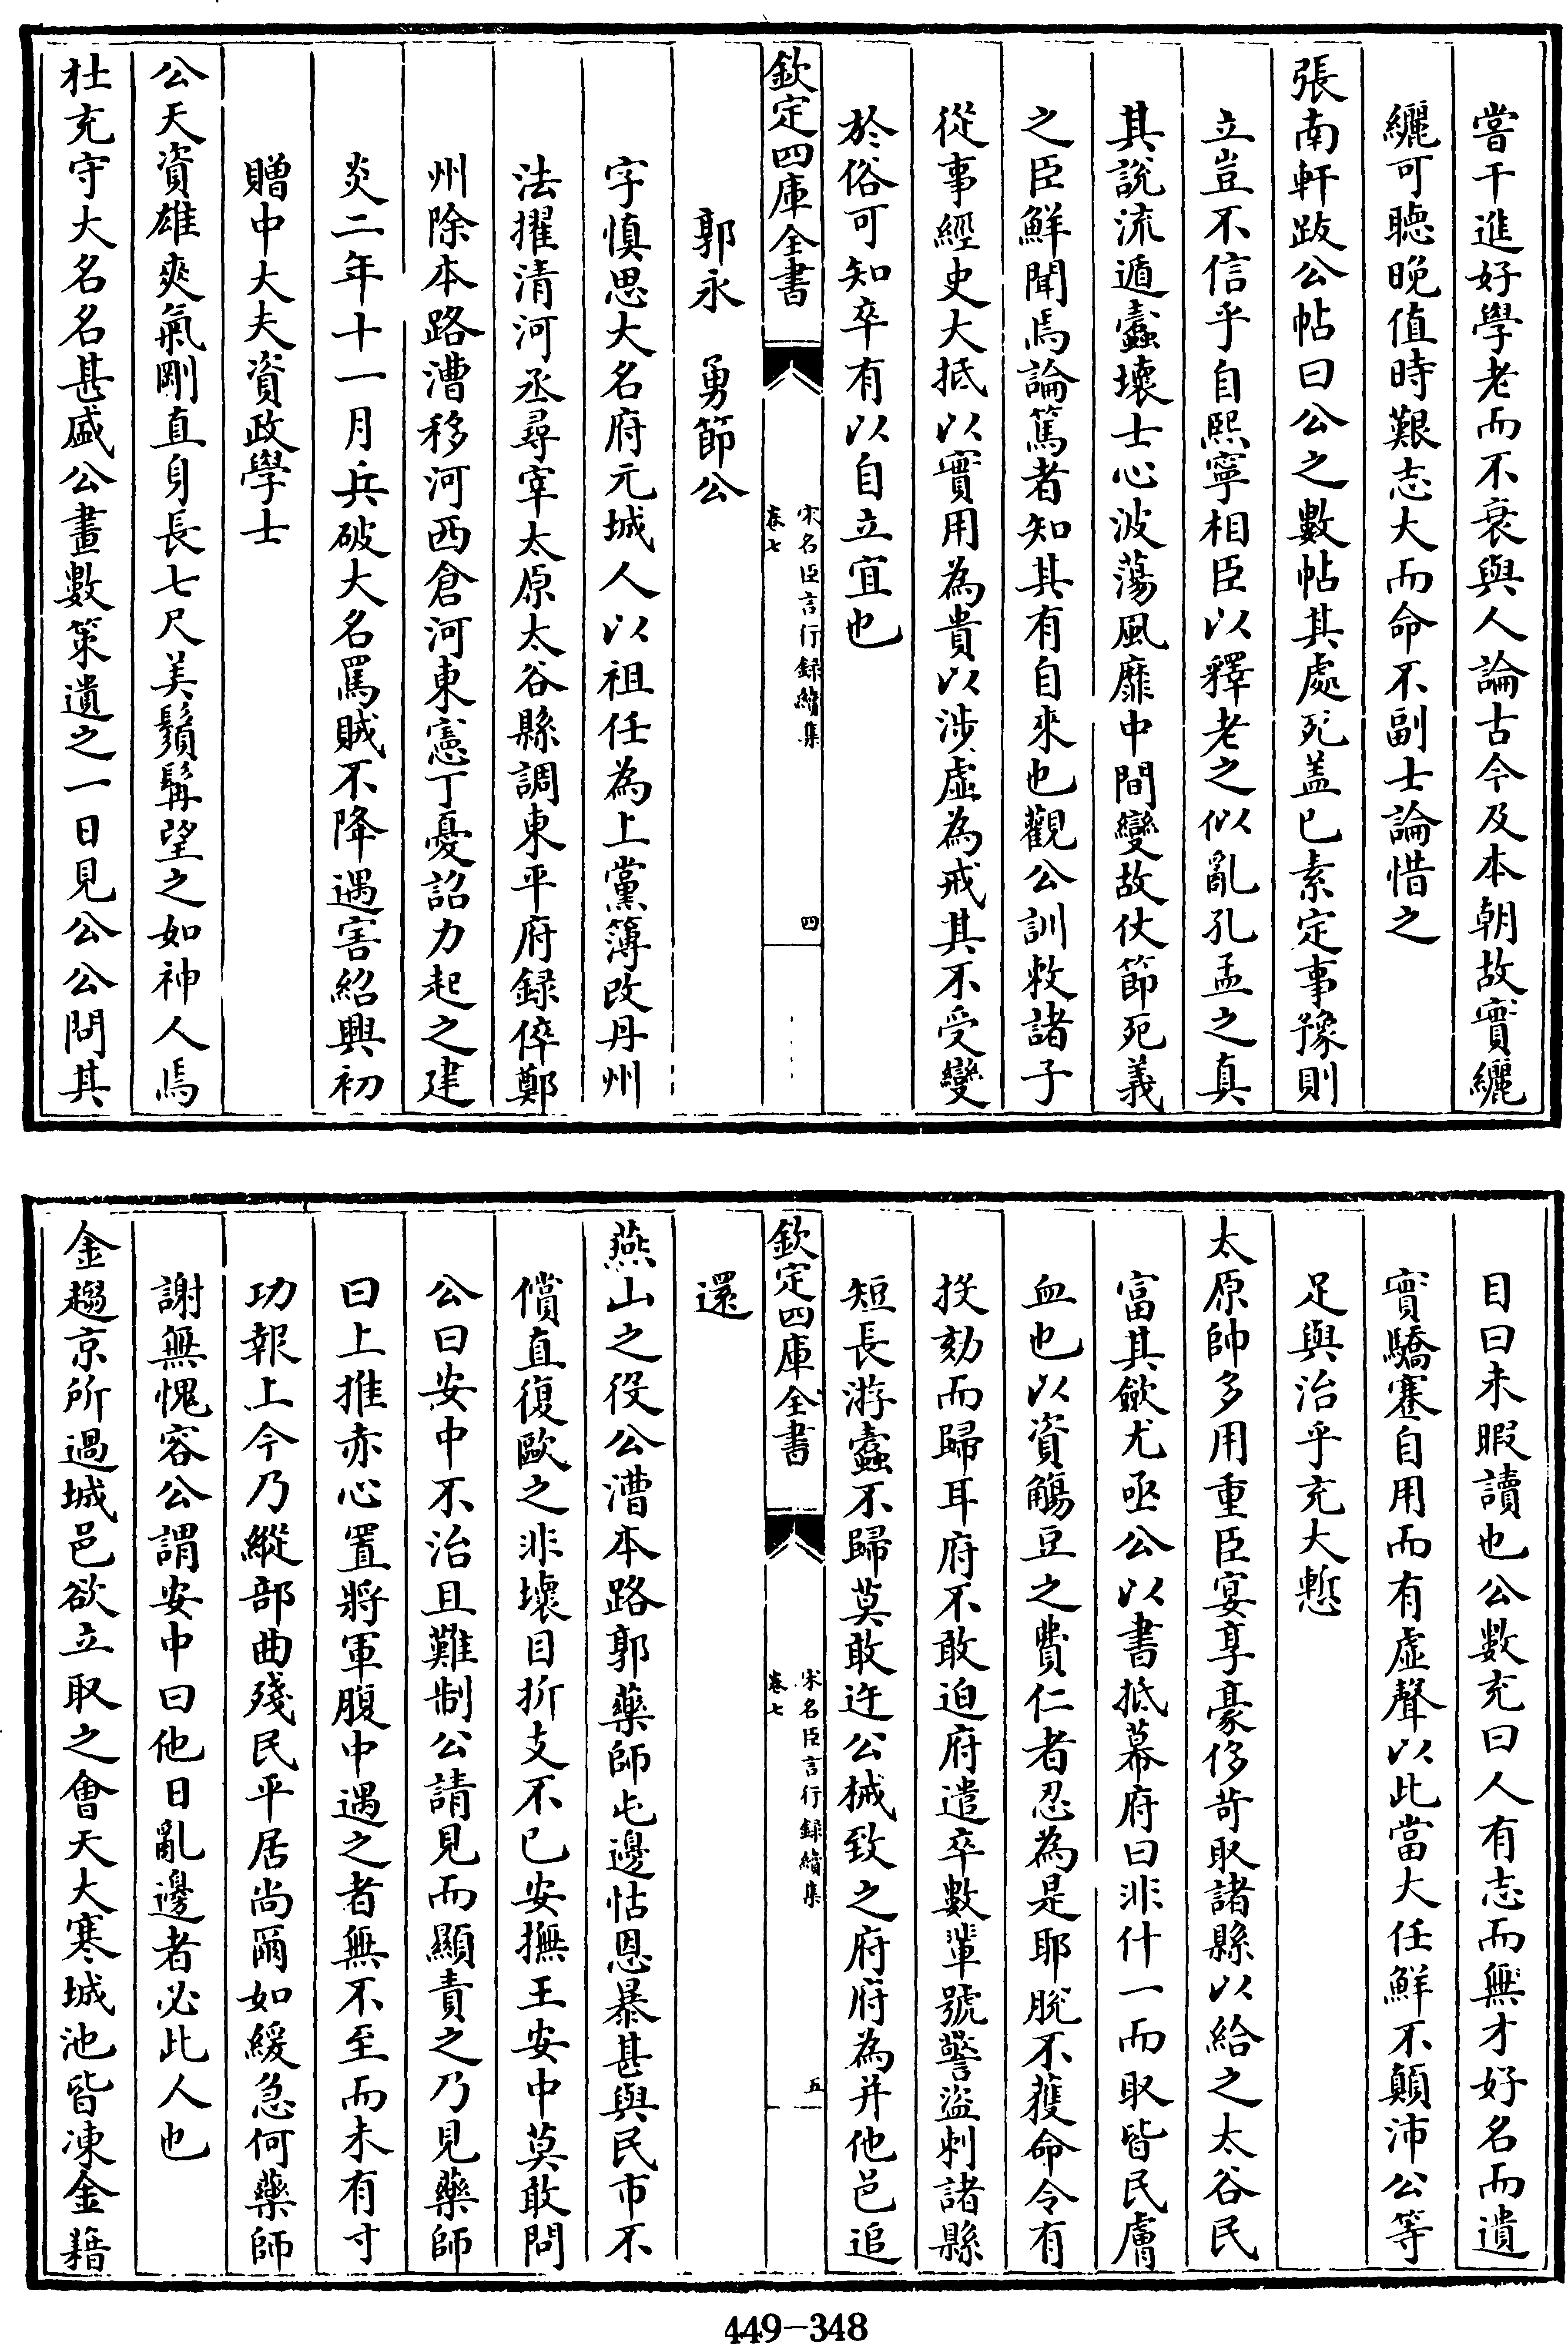 嘗干進好學老而不衰與人論古今及本朝故實纚
纚可聽晚值時艱志大而命不副士論惜之
張南軒跋公帖曰公之數帖其處死盖已素定事豫則
立豈不信乎自熙寧相臣以釋老之似亂孔孟之真
其說流遁蠧壞士心波蕩風靡中間變故仗節死義
之臣鮮聞焉論篤者知其有自來也觀公訓敕諸子
從事經史大抵以實用為貴以涉虚為戒其不受變
於俗可知卒有以自立宜也
欽定四庫全書
宋名臣言行録續集
卷七
四
郭永　勇節公
字慎思大名府元城人以祖任為上黨簿改丹州
法擢清河丞尋宰太原太谷縣調東平府録倅鄭
州除本路漕移河西倉河東憲丁憂詔力起之建
炎二年十一月兵破大名罵賊不降遇害紹興初
贈中大夫資政學士
公天資雄爽氣剛直身長七尺美鬚髯望之如神人焉
杜充守大名名甚盛公畫數策遺之一日見公公問其
目曰未暇讀也公數充曰人有志而無才好名而遺
實驕蹇自用而有虚聲以此當大任鮮不顛沛公等
足與治乎充大慙
太原帥多用重臣宴享豪侈苛取諸縣以給之太谷民
富其歛尤亟公以書抵幕府曰非什一而取皆民膚
血也以資觴豆之費仁者忍為是耶脫不獲命令有
投劾而歸耳府不敢迫府遣卒數輩號警盜刺諸縣
短長游蠧不歸莫敢迕公械致之府府為并他邑追
欽定四庫全書
宋名臣言行録續集
卷七
五
還
燕山之役公漕本路郭藥師屯邊怙恩暴甚與民市不
償直復毆之非壞目折支不已安撫王安中莫敢問
公曰安中不治且難制公請見而顯責之乃見藥師
曰上推赤心置將軍腹中遇之者無不至而未有寸
功報上今乃縱部曲殘民平居尚爾如緩急何藥師
謝無愧容公謂安中曰他日亂邊者必此人也
金趨京所過城邑欲立取之會天大寒城池皆凍金籍
449-348